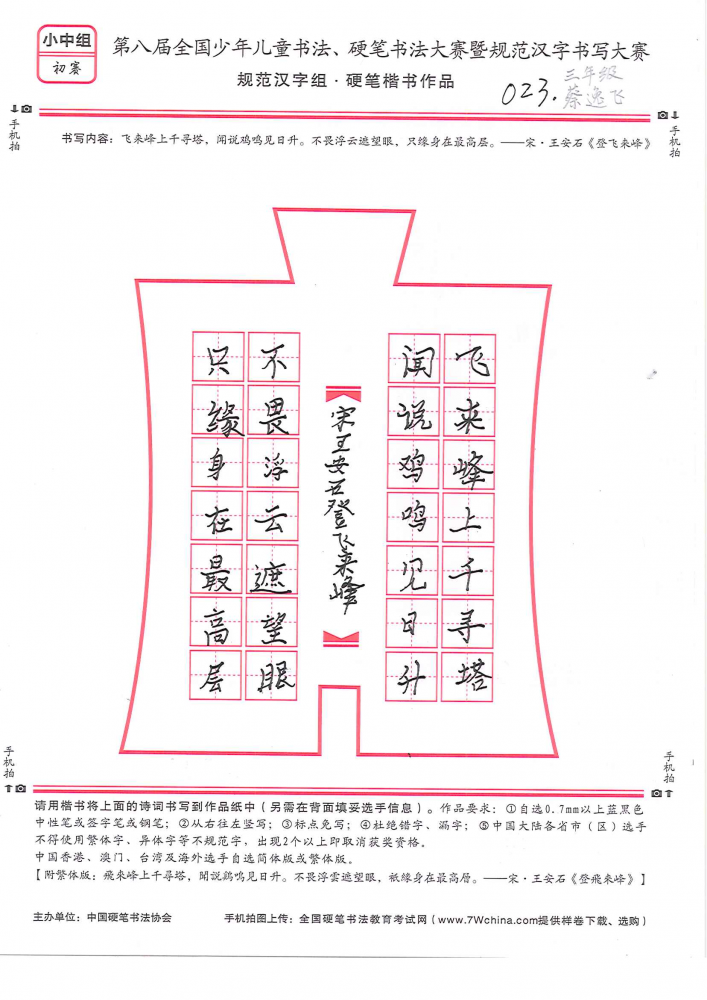 小中组
初赛
第八届全国少年儿童书法、硬笔书法大赛暨规范汉字书写大赛
规范汉字组·硬笔楷书作品
023.
三年级
蔡逸飞
手机拍
手机拍
书写内容：飞来峰上千寻塔，闻说鸡鸣见日升。不畏浮云遮望眼，只缘身在最高层。——宋·王安石《登飞来峰》
飞来峰上千寻塔
闻说鸡鸣见日升
宋王安石登飞来峰
不畏浮云遮望眼
只缘身在最高层
手机拍
手机拍
请用楷书将上面的诗词书写到作品纸中（另需在背面填妥选手信息）。作品要求：①自选0.7mm以上蓝黑色
中性笔或签字笔或钢笔；②从右往左竖写；③标点免写；④杜绝错字、漏字；⑤中国大陆各省市（区）选手
不得使用繁体字、异体字等不规范字，出现2个以上即取消获奖资格。
中国香港、澳门、台湾及海外选手自选简体版或繁体版。
【附繁体版：飛來峰上千尋塔，聞說鷄鳴見日升。不畏浮雲遮望眼，祇緣身在最高層。——宋·王安石《登飛來峰》】
主办单位：中国硬笔书法协会
手机拍图上传：全国硬笔书法教育考试网（www.7Wchina.com提供样卷下载、选购）